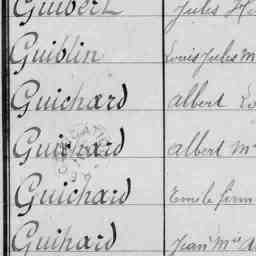 Guibert Jules
Guiblin Louis Jules M
Guichard Albert
Guichard Albert Mie
Guichard Emile Firm
Guihard Jean Mie A